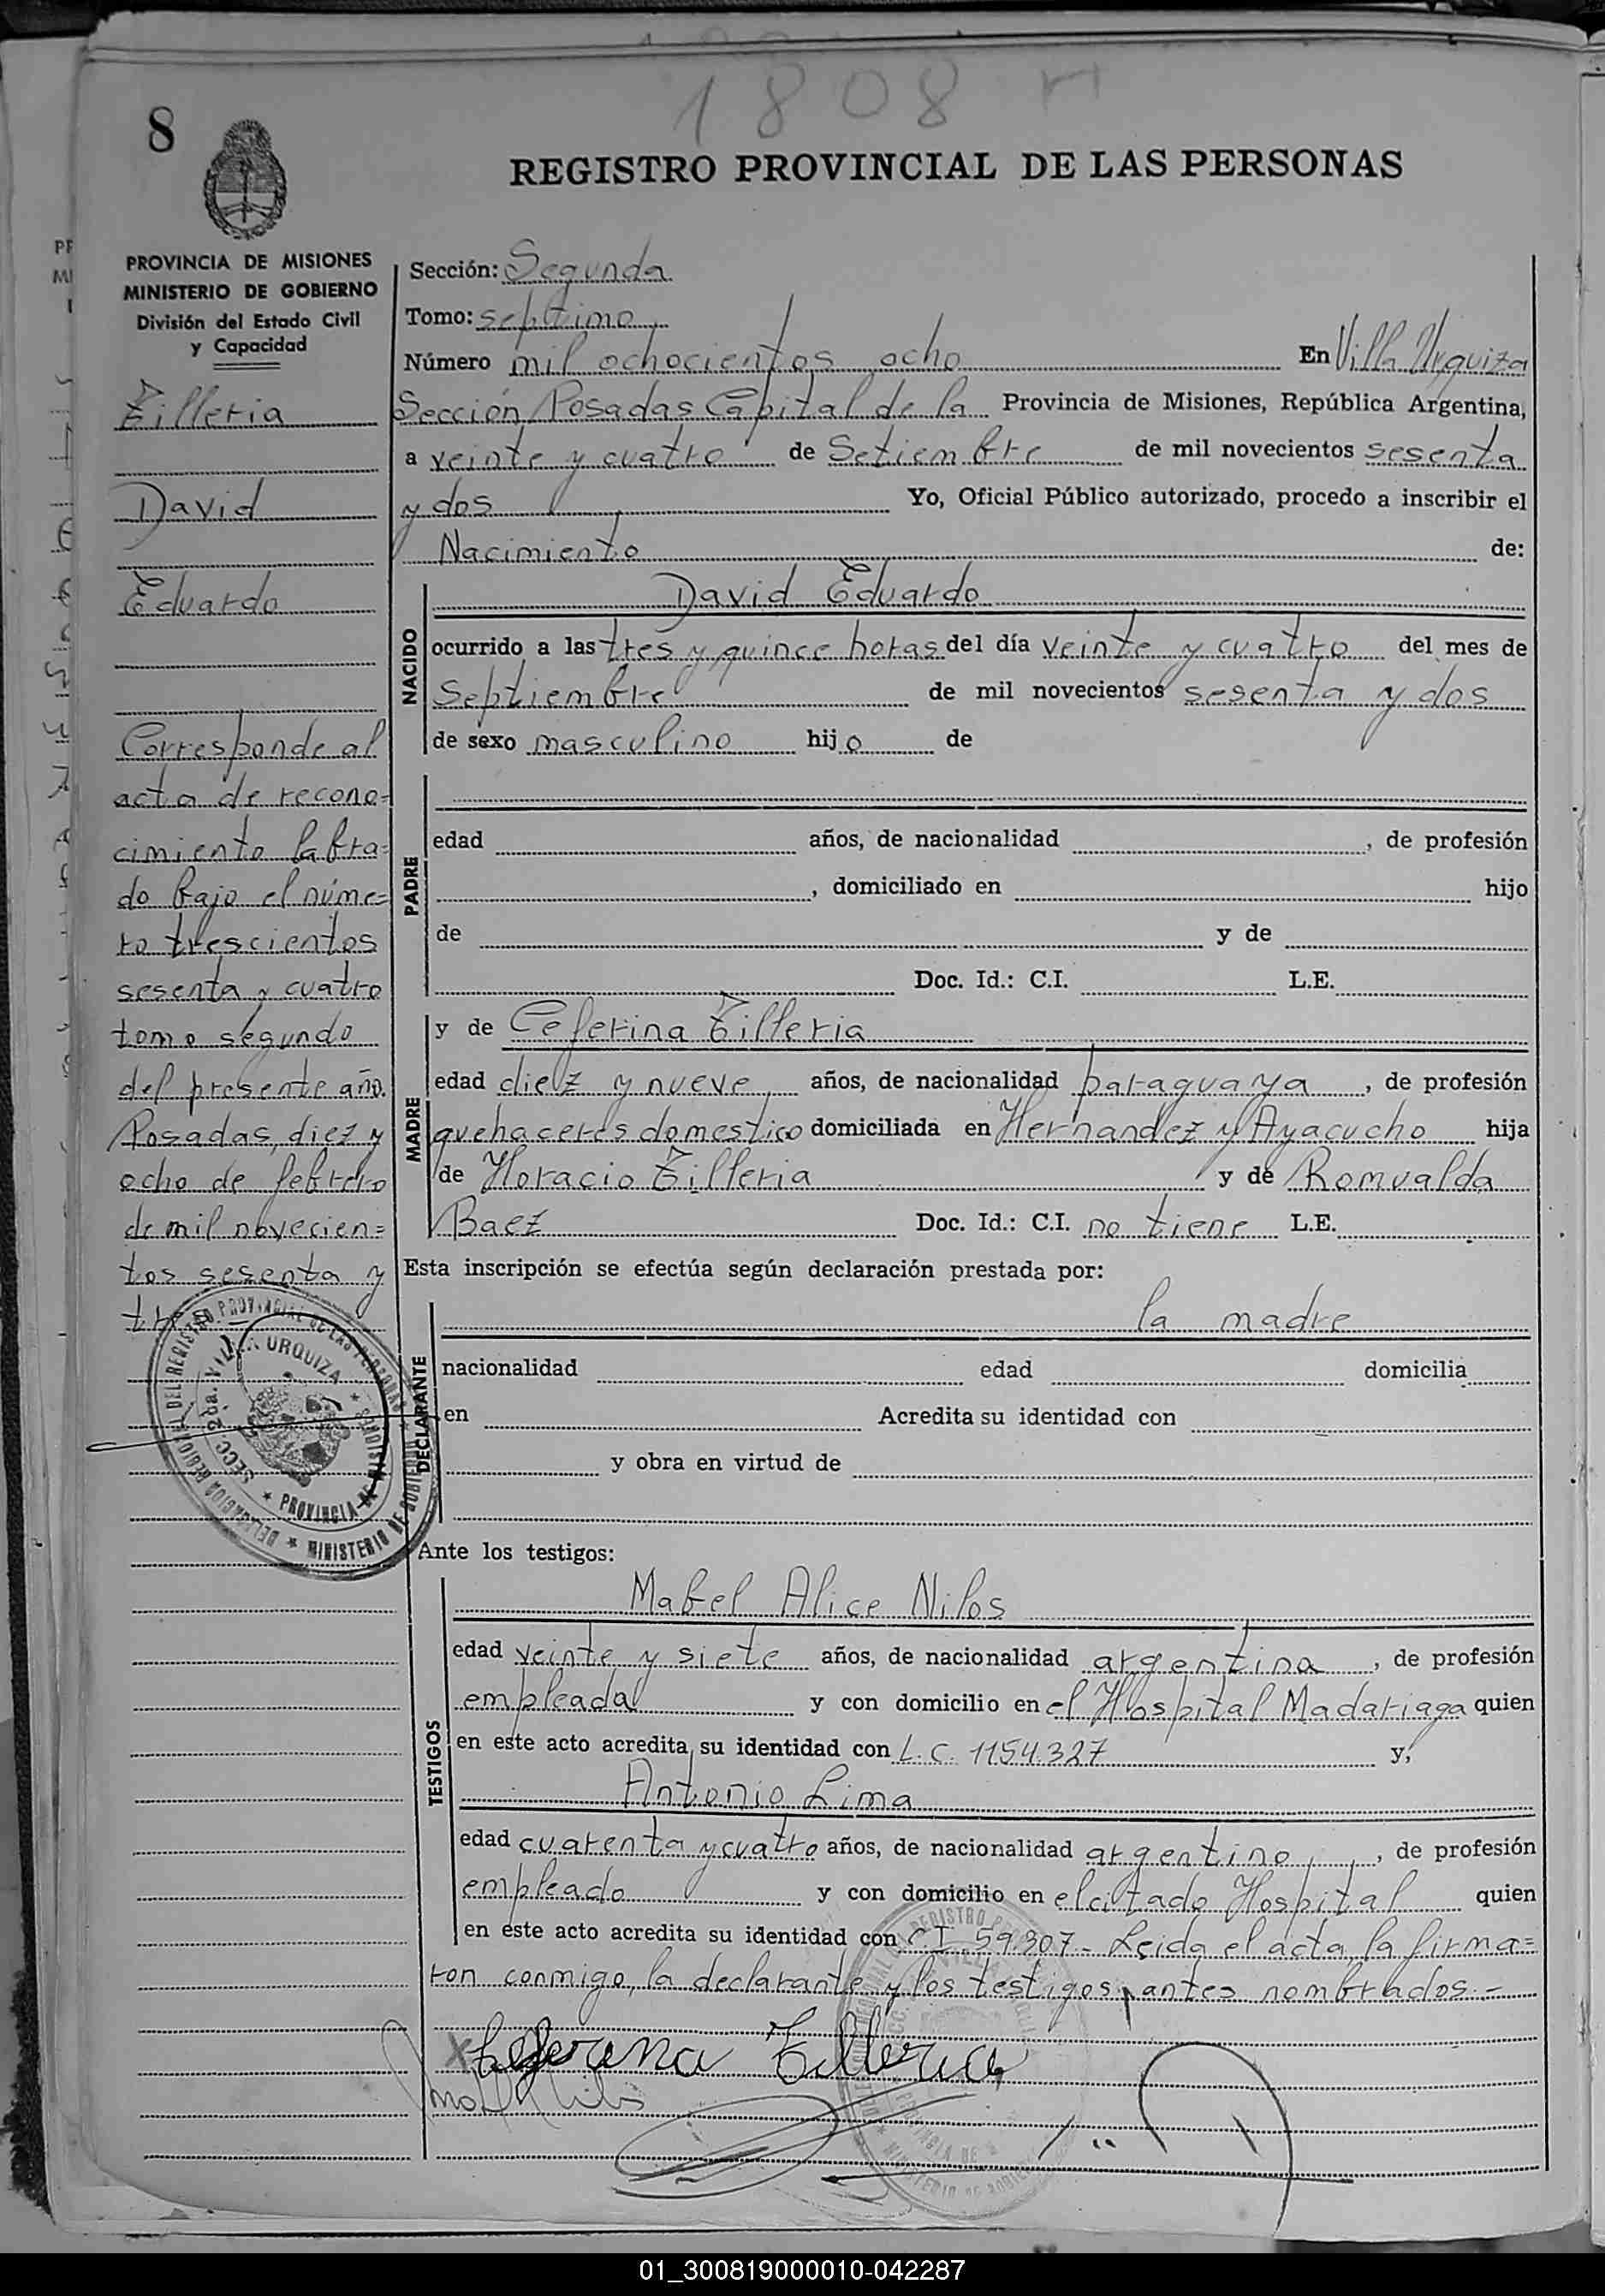 1808
8
REGISTRO PROVINCIAL DE LAS PERSONAS
PROVINCIA DE MISIONES
MINISTERIO DE GOBIERNO
División del Estado Civil
y Capacidad
Tilleria
David
Eduardo
Corresponde al
acta de recono=
cimiento labra=
do bajo el núme=
ro trescientos
sesenta y cuatro
tomo segundo
del presente año.
Posadas, diez y
ocho de febrero
de mil novecien=
tos sesenta y
tres
Sección: Segunda
Tomo: septimo
Número mil ochocientos ocho En Villa Urquiza
Sección Posadas Capital de la Provincia de Misiones, República Argentina,
a veinte y cuatro de Setiembre de mil novecientos sesenta
y dos Yo, Oficial Público autorizado, procedo a inscribir el
Nacimiento de:
NACIDO
David Eduardo
ocurrido a las tres y quince horas del día veinte y cuatro del mes de
Septiembre de mil novecientos sesenta y dos
de sexo masculino hijo de
PADRE
edad años, de nacionalidad , de profesión
, domiciliado en hijo
de y de
Doc. Id.: C.I. L.E.
MADRE
y de Ceferina Tilleria
edad diez y nueve años, de nacionalidad paraguaya , de profesión
quehaceres domestico domiciliada en Hernandez y Ayacucho hija
de Horacio Tilleria y de Romualda
Baez Doc. Id.: C.I. no tiene L.E.
Esta inscripción se efectúa según declaración prestada por:
DECLARANTE
la madre
nacionalidad edad domicilia
en Acredita su identidad con
y obra en virtud de
Ante los testigos:
TESTIGOS
Mabel Alice Nilos
edad veinte y siete años, de nacionalidad argentina , de profesión
empleada y con domicilio en el Hospital Madariaga quien
en este acto acredita su identidad con L.C. 1154.327 y,
Antonio Lima
edad cuarenta y cuatro años, de nacionalidad argentino , de profesión
empleado y con domicilio en el citado Hospital quien
en este acto acredita su identidad con C I 59.307 - Leida el acta, la firma=
ron conmigo, la declarante y los testigos, antes nombrados.-
x Ceferina Tilleria
DELEGACION REGIONAL DEL REGISTRO PROVINCIAL DE LAS PERSONAS
SECC. 2da. VILLA URQUIZA
PROVINCIA DE MISIONES
MINISTERIO DE GOBIERNO
01_300819000010-042287